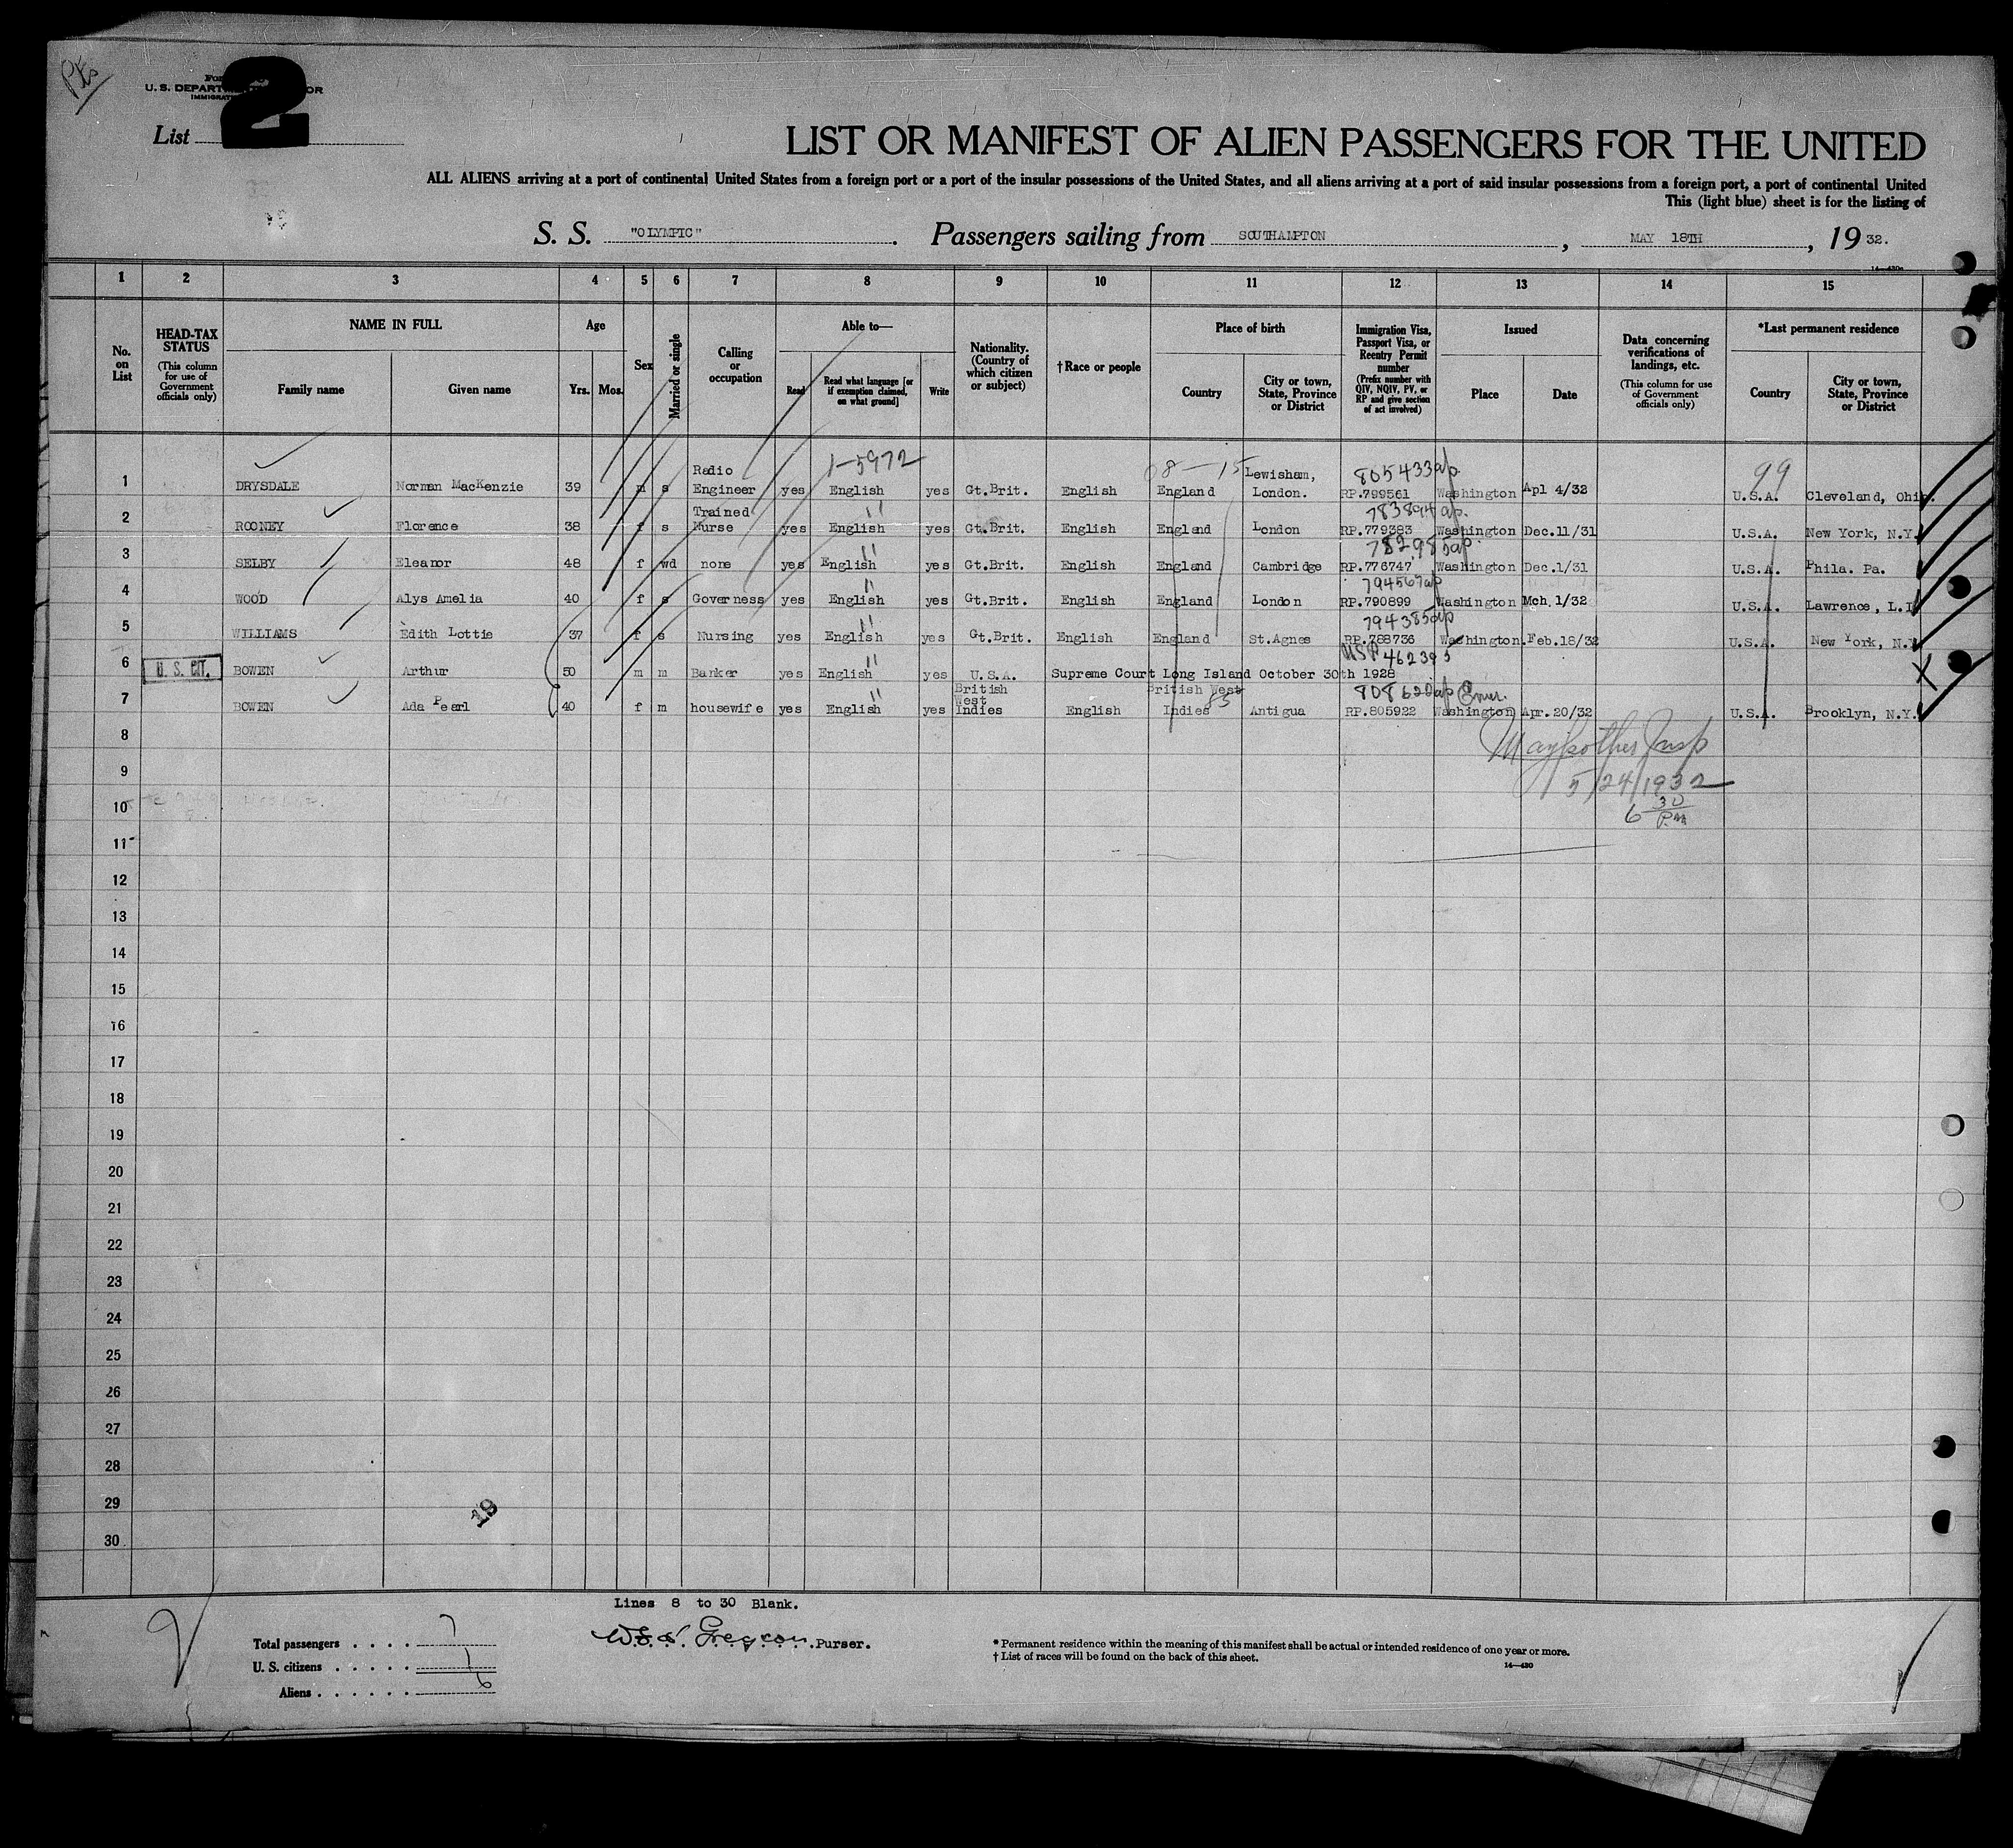 PEs
2
U. S. DEPART OR
List
LIST OR MANIFEST OF ALIEN PASSENGERS FOR THE UNITED
ALL ALIENS arriving at a port of continental United States from a foreign port or a port of the insular possessions of the United States, and all aliens arriving at a port of said insular possessions from a foreign port, a port of continental United
This (light blue) sheet is for the listing of
S. S. "OLYMPIC". Passengers sailing from SOUTHAMPTON, MAY 18TH, 19 32.
1 2 3 4 5 6 7 8 9 10 11 12 13 14 15
No. on List
HEAD-TAX STATUS
(This column for use of Government officials only)
NAME IN FULL
Family name Given name
Age
Yrs. Mos.
Sex
Married or single
Calling or occupation
Able to—
Read
Read what language [or if exemption claimed, on what ground]
Write
Nationality. (Country of which citizen or subject)
†Race or people
Place of birth
Country
City or town, State, Province or District
Immigration Visa, Passport Visa, or Reentry Permit number
(Prefix number with QIV, NQIV, PV, or RP and give section of act involved)
Issued
Place Date
Data concerning verifications of landings, etc.
(This column for use of Government officials only)
*Last permanent residence
Country
City or town, State, Province or District
1-5972 08-15 805433 99
1 DRYSDALE Norman MacKenzie 39 m s Radio Engineer yes English yes Gt.Brit. English England Lewisham, London. RP.799561 Washington Apl 4/32 U.S.A. Cleveland, Ohio.
783894
2 ROONEY Florence 38 f s Trained Nurse yes English yes Gt.Brit. English England London RP.779383 Washington Dec.11/31 U.S.A. New York, N.Y.
782985
3 SELBY Eleanor 48 f wd none yes English yes Gt.Brit. English England Cambridge RP.776747 Washington Dec.1/31 U.S.A. Phila. Pa.
794569
4 WOOD Alys Amelia 40 f s Governess yes English yes Gt.Brit. English England London RP.790899 Washington Mch.1/32 U.S.A. Lawrence, L.I
794385
5 WILLIAMS Edith Lottie 37 f s Nursing yes English yes Gt.Brit. English England St.Agnes RP.788736 Washington. Feb.18/32 U.S.A. New York, N.Y
USP 462395
6 U. S. CIT. BOWEN Arthur 50 m m Banker yes English yes U.S.A. Supreme Court Long Island October 30th 1928
808620
7 BOWEN Ada Pearl 40 f m housewife yes English yes British West Indies English British West Indies 85 Antigua RP.805922 Washington Apr.20/32 U.S.A. Brooklyn, N.Y.
8
5/24/1932
9
6 30 P.m
10
11
12
13
14
15
16
17
18
19
20
21
22
23
24
25
26
27
28
29
19
30
Lines 8 to 30 Blank.
Purser.
Total passengers . . . . 7
U. S. citizens . . . . . 1
Aliens . . . . . . 6
* Permanent residence within the meaning of this manifest shall be actual or intended residence of one year or more.
† List of races will be found on the back of this sheet.
14—430